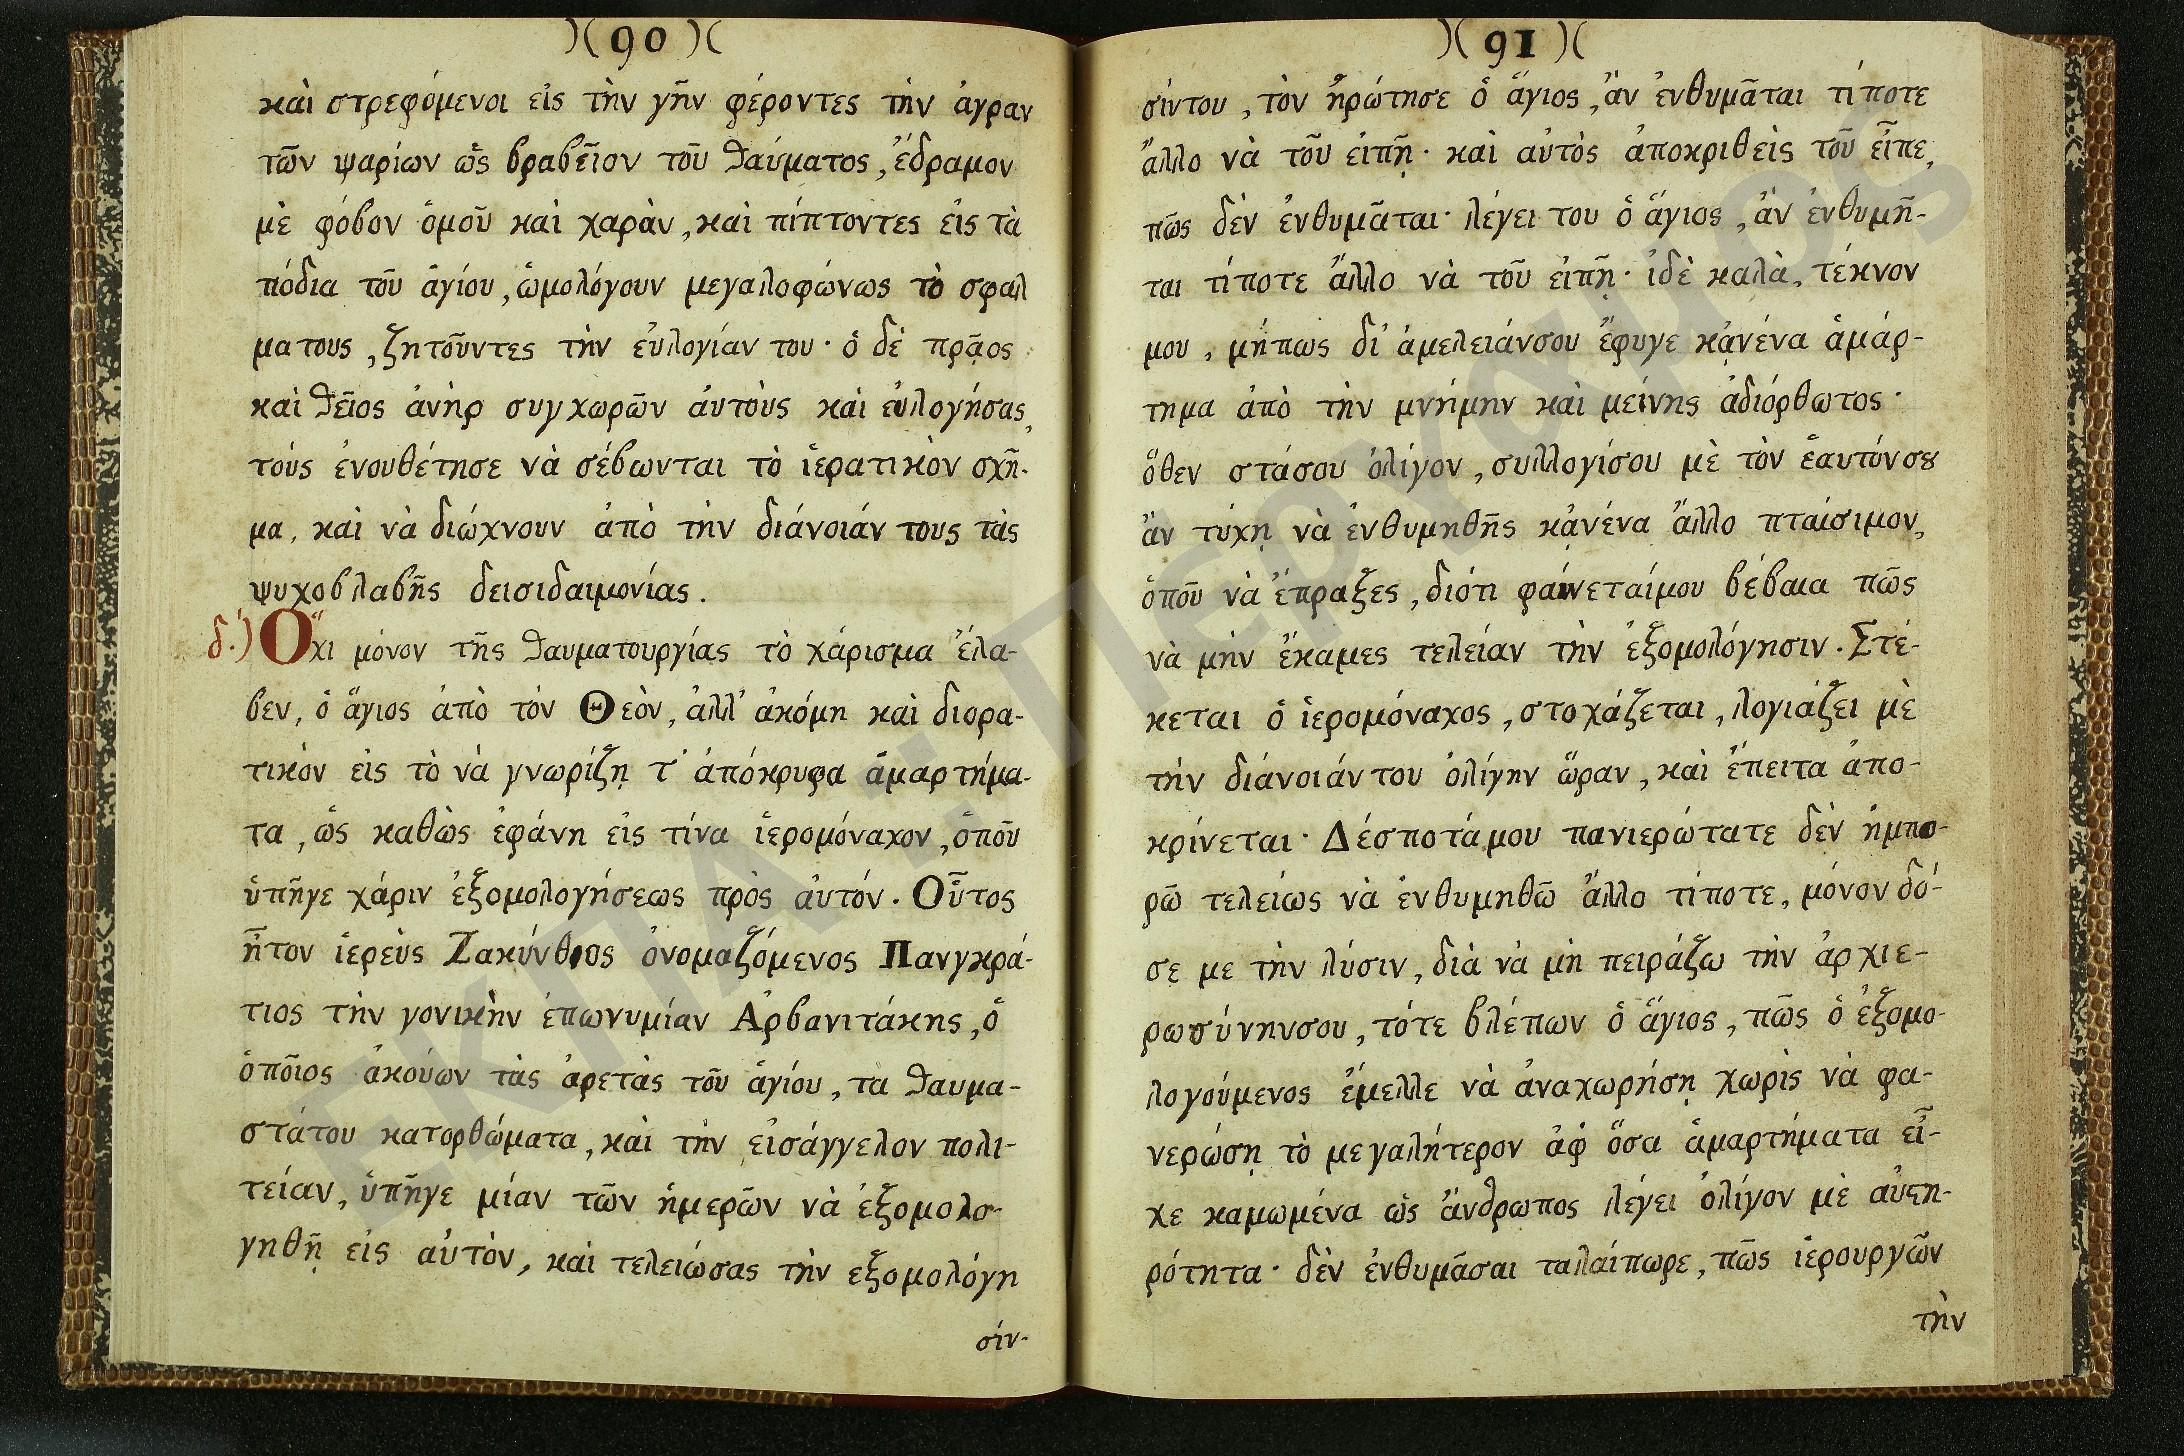 )( 90 )(
καὶ στρεφόμενοι εἰς τὴν γῆν φέροντες τὴν ἄγραν
τῶν ψαρίων ὡς βραβεῖον τοῦ θαύματος, ἔδραμον
μὲ φόβον ὁμοῦ καὶ χαρὰν, καὶ πίπτοντες εἰς τὰ
πόδια τοῦ ἁγίου, ὡμολόγουν μεγαλοφώνως τὸ σφαλ
ματους, ζητοῦντες τὴν εὐλογίαν του· ὁ δὲ πρᾷος
καὶ θεῖος ἀνὴρ συγχωρῶν αὐτοὺς καὶ εὐλογήσας,
τοὺς ἐνουθέτησε νὰ σέβωνται τὸ ἱερατικὸν σχῆ-
μα, καὶ νὰ διώχνουν ἀπὸ τὴν διάνοιάν τους τὰς
ψυχοβλαβῆς δεισιδαιμονίας.
δ.) Ὄχι μόνον τῆς θαυματουργίας τὸ χάρισμα ἔλα-
βεν, ὁ ἅγιος ἀπὸ τὸν Θεὸν, ἀλλ' ἀκόμη καὶ διορα-
τικὸν εἰς τὸ νὰ γνωρίζῃ τ' ἀπόκρυφα ἁμαρτήμα-
τα, ὡς καθὼς ἐφάνη εἰς τίνα ἱερομόναχον, ὁποῦ
ὑπῆγε χάριν ἐξομολογήσεως πρὸς αὐτόν. Οὗτος
ἦτον ἱερεὺς Ζακύνθιος ὀνομαζόμενος Πανγκρά-
τιος τὴν γονικὴν ἐπωνυμίαν Ἀρβανιτάκης, ὁ
ὁποῖος ἀκούων τὰς ἀρετὰς τοῦ ἁγίου, τα θαυμα-
στάτου κατορθώματα, καὶ τὴν εἰσάγγελον πολι-
τείαν, ὑπῆγε μίαν τῶν ἡμερῶν νὰ ἐξομολο-
γηθῇ εἰς αὐτὸν, καὶ τελειώσας τὴν ἐξομολόγη
σίν-
)( 91 )(
σίντου, τὸν ἠρώτησε ὁ ἅγιος, ἂν ἐνθυμᾶται τίποτε
ἄλλο νὰ τοῦ εἰπῇ· καὶ αὐτὸς ἀποκριθεὶς τοῦ εἶπε,
πῶς δὲν ἐνθυμᾶται· λέγει του ὁ ἅγιος, ἀν ἐνθυμῆ-
ται τίποτε ἄλλο νὰ τοῦ εἰπῇ· ἰδὲ καλὰ, τέκνον
μου, μήπως δι' ἀμελειάνσου ἔφυγε κᾀνένα ἁμάρ-
τημα ἀπὸ τὴν μνήμην καὶ μείνης ἀδιόρθωτος·
ὅθεν στάσου ὀλίγον, συλλογίσου μὲ τὸν ἑαυτόνσȣ
ἂν τύχῃ νὰ ἐνθυμηθῆς κᾀνένα ἄλλο πταίσιμον,
ὁποῦ νὰ ἔπραξες, διότι φαίνεταίμου βέβαια πῶς
νὰ μὴν ἔκαμες τελείαν τὴν ἐξομολόγησιν. Στέ-
κεται ὁ ἱερομόναχος, στοχάζεται, λογιάζει μὲ
τὴν διάνοιάν του ὀλίγην ὥραν, καὶ ἔπειτα ἀπο-
κρίνεται· Δέσποτά μου πανιερώτατε δὲν ἠμπο-
ρῶ τελείως νὰ ἐνθυμηθῶ ἄλλο τίποτε, μόνον δό-
σε με τὴν λύσιν, διὰ νὰ μὴ πειράζω τὴν ἀρχιε-
ρωσύνηνσου, τότε βλέπων ὁ ἅγιος, πῶς ὁ ἐξομο-
λογούμενος ἔμελλε νὰ ἀναχωρήσῃ χωρὶς νὰ φα-
νερώσῃ τὸ μεγαλήτερον ἀφ' ὅσα ἁμαρτήματα εἶ-
χε καμωμένα ὡς ἄνθρωπος λέγει ὀλίγον μὲ αὐϛη-
ρότητα· δὲν ἐνθυμᾶσαι ταλαίπωρε, πῶς ἱερουργῶν
τὴν
ΕΚΠΑ : Πέργαμος